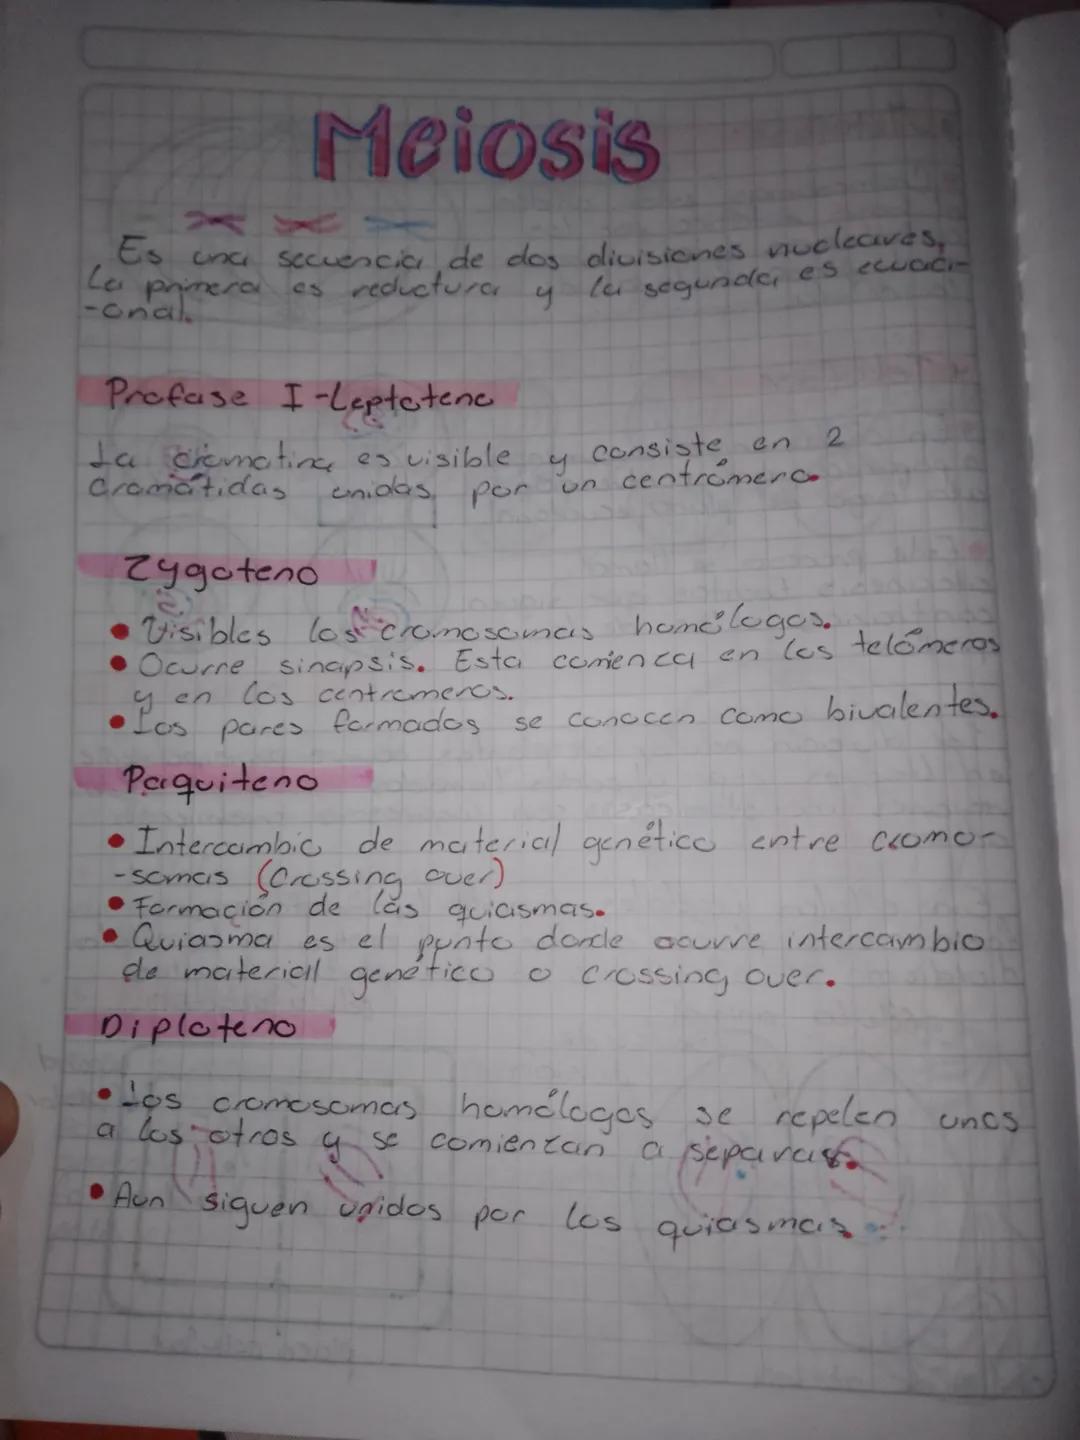 Meiosis
Es una secuencia de dos divisiones nucleares,
La primera es reductura y la segunda es ecuaci-
-onal.
Profase I-Leptoteno
La cromatina es visible y consiste en 2
Cromátidas unidas por un centrómero.
Zygoteno
• Visibles los cromosomas homólogos.
• Ocurre sinapsis. Esta comienza en los telómeros
y en los centromeros.
• Los pares formados se conocen como bivalentes.
Paquiteno
• Intercambio de material genético entre cromo-
-somas (Crossing over)
• Formación de las quiasmas.
• Quiasma es el punto donde ocurre intercambio
de material genético o crossing over.
Diploteno
• Los cromosomas homólogos se repelen unos
a los otros y se comienzan a separar.
• Aun siguen unidos por los quiasmas.